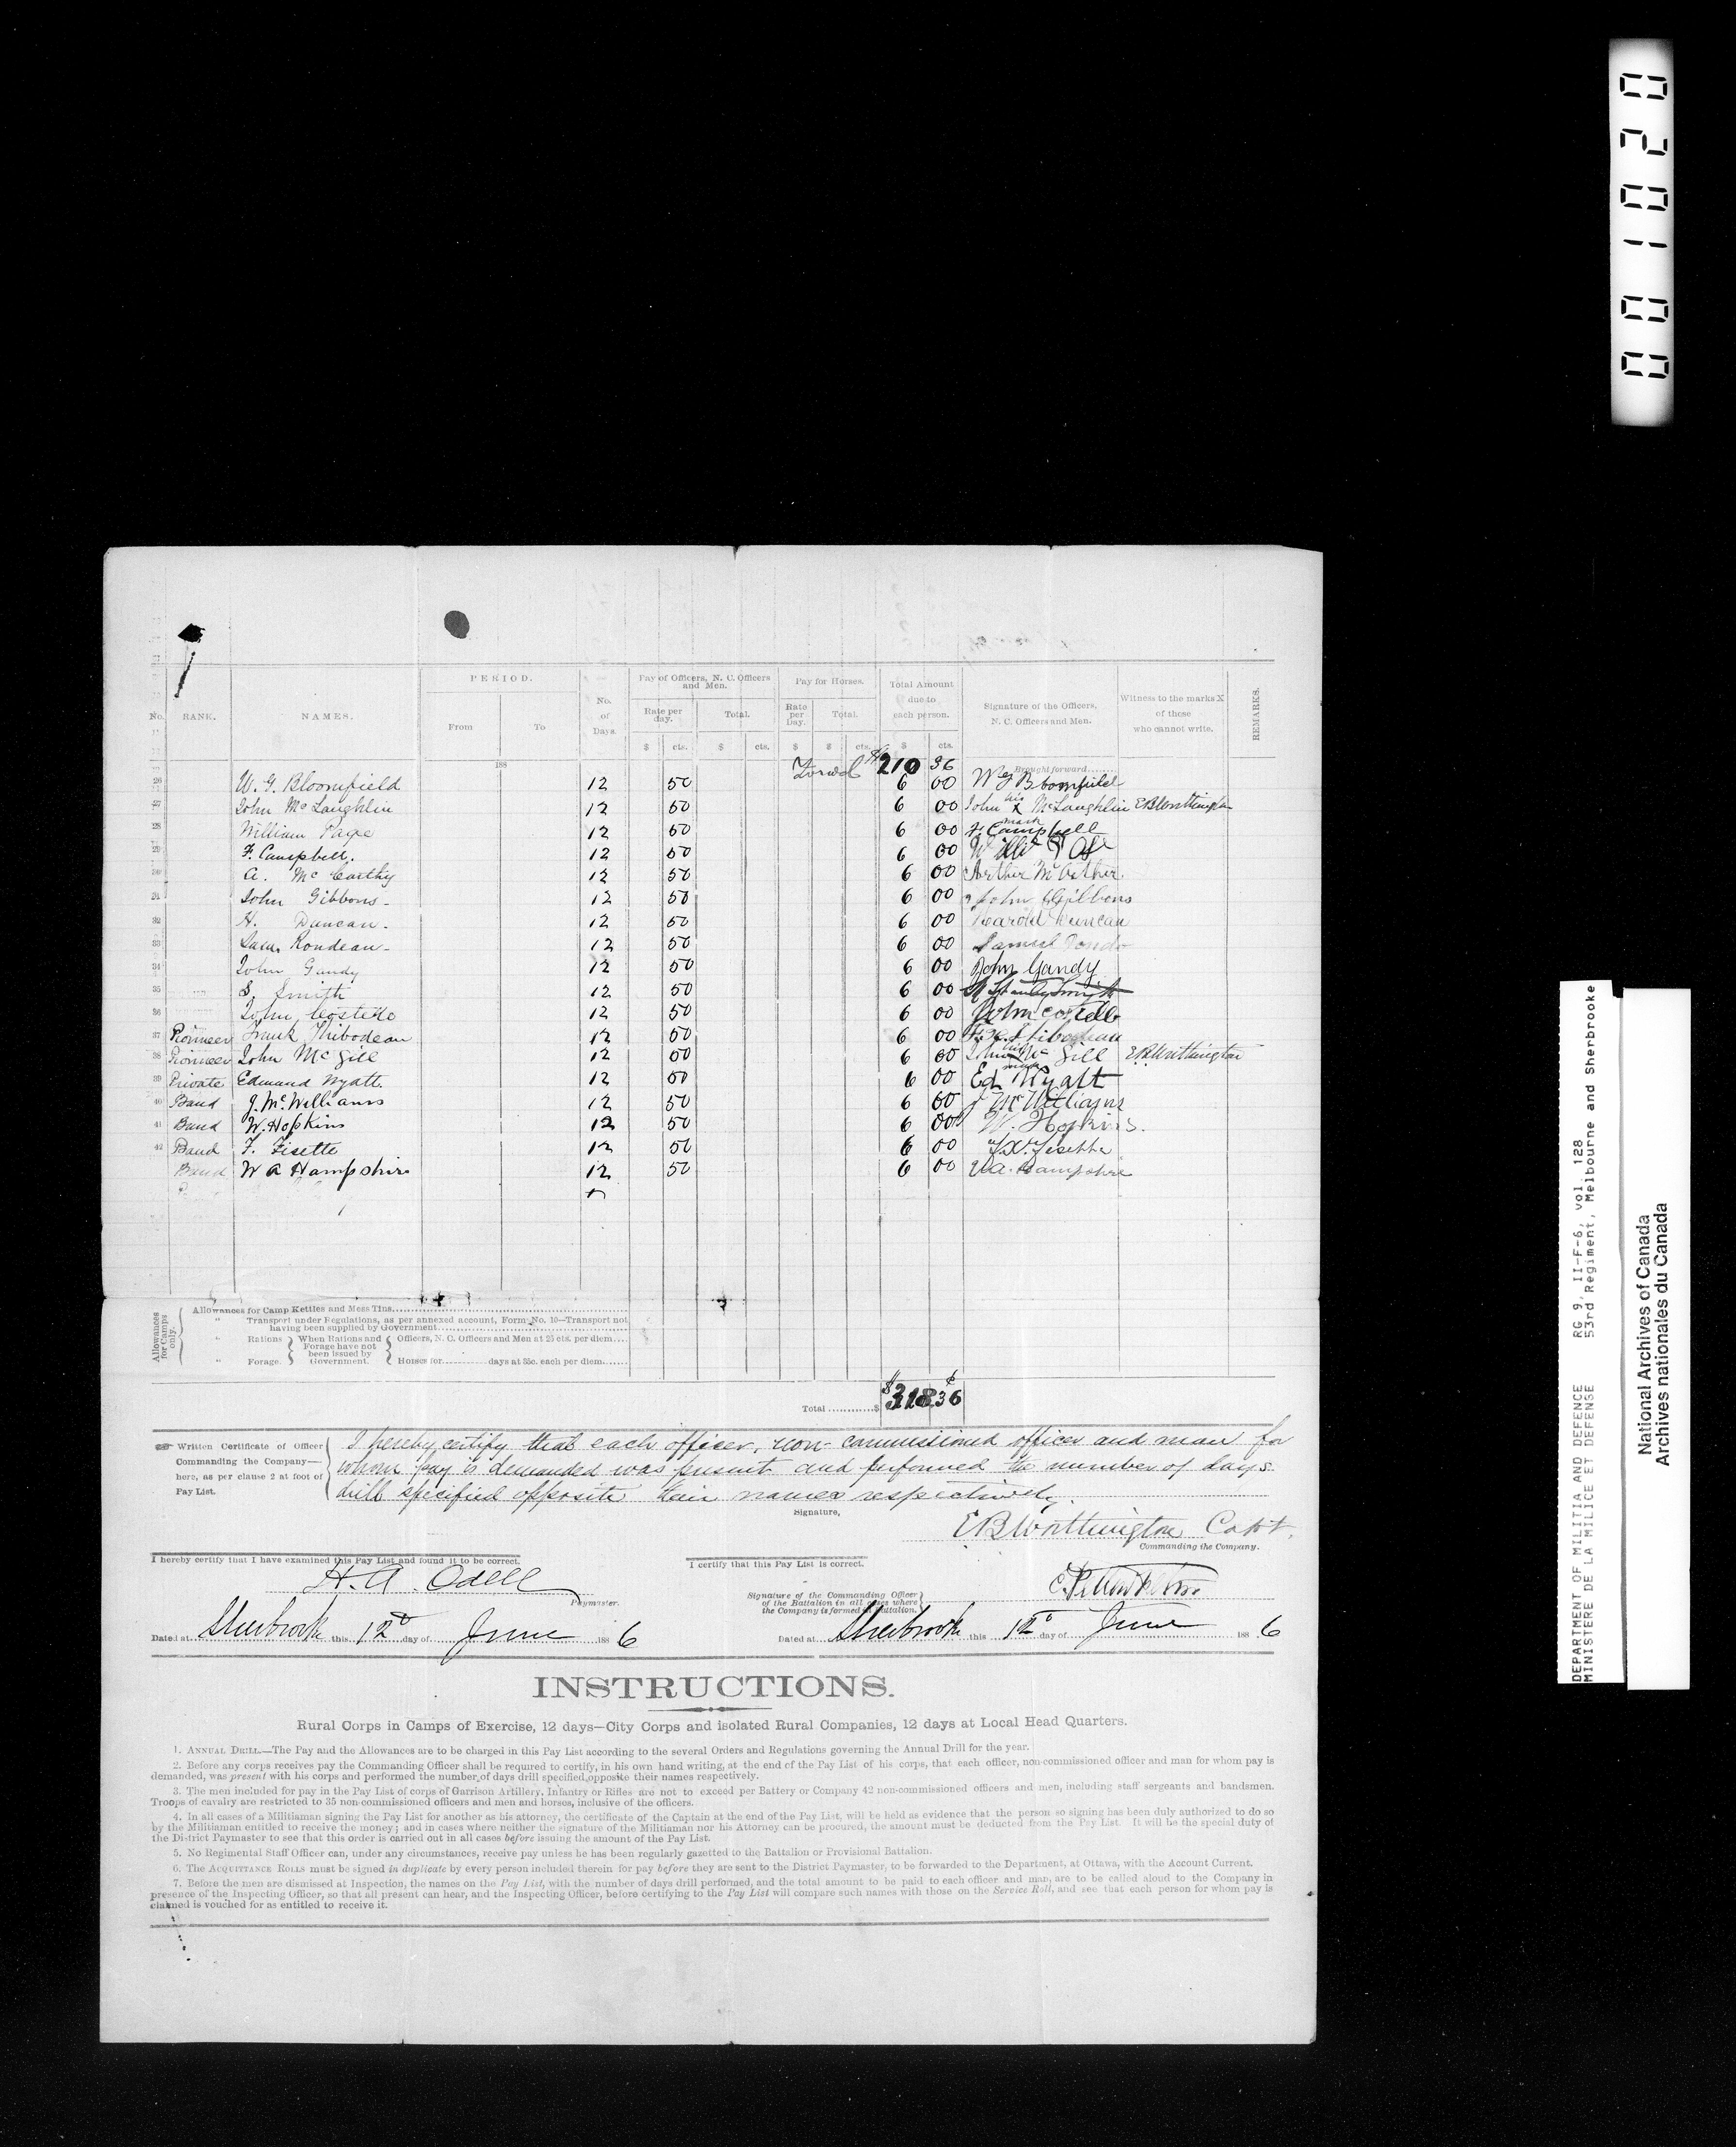 PERIOD.
Pay of Officers, N. C. Officers and Men.
Pay for Horses.
Total Amount due to each person.
No. RANK. NAMES. From To No. of Days. Rate per day. Total. Rate per Day. Total. Signature of the Officers, N. C. Officers and Men. Witness to the marks X of those who cannot write. REMARKS.
$ cts. $ cts. $ $ cts. $ cts.
188 Forwd $210 36 Brought forward
26 W. G. Bloomfield 12 50 6 00 W G Bloomfield
27 John McLaughlin 12 50 6 00 John his X mark McLaughlin EBWorthington
28 William Page 12 50 6 00 F. Campbell
29 F. Campbell. 12 50 6 00
A. McCarthy 12 50 6 00 Arther
31 John Gibbons- 12 50 6 00 John Gibbons
32 H. Duncan. 12 50 6 00 Harold Duncan
33 Sam. Rondeau- 12 50 6 00 Samuel
34 John Gandy 12 50 6 00 John Gandy
35 S Smith 12 50 6 00
36 John Costello 12 50 6 00 John Costello
37 Pioneer Frank Thibodeau 12 50 6 00 Thibodeau
38 Pioneer John McGill 12 50 6 00 John his mark McGill EBWorthington
39 Private Edmund Wyatt. 12 50 6 00 Ed Wyatt
40 Band J. McWilliams 12 50 6 00 J McWilliams
41 Band W. Hopkins 12 50 6 00 W. Hopkins.
42 Band F. Fisette 12 50 6 00 F.X. Fisette
Band W A Hampshire 12 50 6 00 W.A. Hampshire
Allowances for Camps only.
Allowances for Camp Kettles and Mess Tins
" Transport under Regulations, as per annexed account, Form No. 10—Transport not having been supplied by Government
" Rations } When Rations and Forage have not been issued by Government. { Officers, N. C. Officers and Men at 25 cts. per diem
" Forage. Horses for days at 35c. each per diem
Total $ $318.36
Written Certificate of Officer Commanding the Company—here, as per clause 2 at foot of Pay List.
I hereby certify that each officer, non-commissioned officer and man for
whom pay is demanded was present and performed the number of days
drill specified opposite their names respectively.
Signature,
EBWorthington Capt.
Commanding the Company.
I hereby certify that I have examined this Pay List and found it to be correct.
I certify that this Pay List is correct.
H. A. Odell
Paymaster.
Signature of the Commanding Officer of the Battalion in all cases where the Company is formed in Battalion.
Dated at Sherbrooke this 12th day of June 1886
Dated at Sherbrooke this 12th day of June 1886
INSTRUCTIONS.
Rural Corps in Camps of Exercise, 12 days—City Corps and isolated Rural Companies, 12 days at Local Head Quarters.
1. ANNUAL DRILL.—The Pay and the Allowances are to be charged in this Pay List according to the several Orders and Regulations governing the Annual Drill for the year.
2. Before any corps receives pay the Commanding Officer shall be required to certify, in his own hand writing, at the end of the Pay List of his corps, that each officer, non-commissioned officer and man for whom pay is
demanded, was present with his corps and performed the number of days drill specified opposite their names respectively.
3. The men included for pay in the Pay List of corps of Garrison Artillery, Infantry or Rifles are not to exceed per Battery or Company 42 non-commissioned officers and men, including staff sergeants and bandsmen.
Troops of cavalry are restricted to 35 non-commissioned officers and men and horses, inclusive of the officers.
4. In all cases of a Militiaman signing the Pay List for another as his attorney, the certificate of the Captain at the end of the Pay List, will be held as evidence that the person so signing has been duly authorized to do so
by the Militiaman entitled to receive the money; and in cases where neither the signature of the Militiaman nor his Attorney can be procured, the amount must be deducted from the Pay List. It will be the special duty of
the District Paymaster to see that this order is carried out in all cases before issuing the amount of the Pay List.
5. No Regimental Staff Officer can, under any circumstances, receive pay unless he has been regularly gazetted to the Battalion or Provisional Battalion.
6. The ACQUITTANCE ROLLS must be signed in duplicate by every person included therein for pay before they are sent to the District Paymaster, to be forwarded to the Department, at Ottawa, with the Account Current.
7. Before the men are dismissed at Inspection, the names on the Pay List, with the number of days drill performed, and the total amount to be paid to each officer and man, are to be called aloud to the Company in
presence of the Inspecting Officer, so that all present can hear, and the Inspecting Officer, before certifying to the Pay List will compare such names with those on the Service Roll, and see that each person for whom pay is
claimed is vouched for as entitled to receive it.
001020
DEPARTMENT OF MILITIA AND DEFENCE RG 9, II-F-6, vol. 128
MINISTERE DE LA MILICE ET DEFENSE 53rd Regiment, Melbourne and Sherbrooke
National Archives of Canada
Archives nationales du Canada